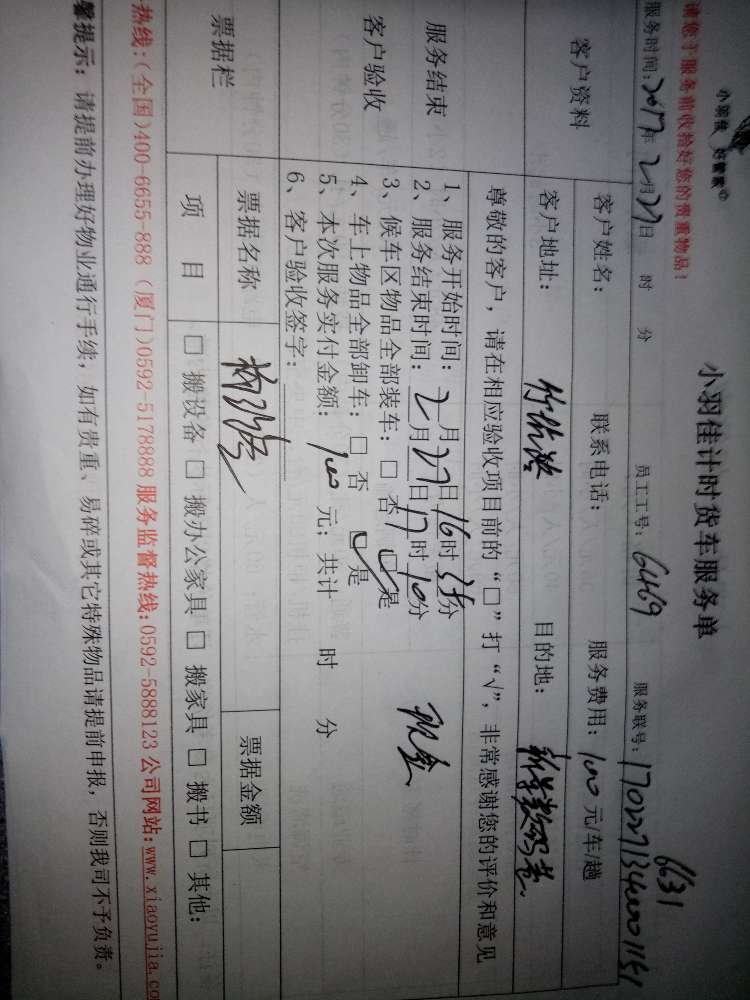 小羽佳 好管家
请您于服务前收拾好您的贵重物品！
小羽佳计时货车服务单
6631
服务时间：2017年2月27日 时 分 员工工号：6469 服务联号：
客户资料
客户姓名： 联系电话： 服务费用：100元/车/趟
客户地址： 目的地：
尊敬的客户，请在相应验收项目前的“□”打“√”，非常感谢您的评价和意见
服务结束
客户验收
1、服务开始时间：2月27日16时35分
2、服务结束时间：2月27日17时10分
3、候车区物品全部装车：□ 否 □ 是 现金
4、车上物品全部卸车：□ 否 □ 是
5、本次服务实付金额：100元；共计 时 分
6、客户验收签字：
票据栏
票据名称 票据金额
项 目 □ 搬设备 □ 搬办公家具 □ 搬家具 □ 搬书 □ 其他：
热线：(全国)400-6655-888 (厦门)0592-5178888 服务监督热线：0592-5888123 公司网站：www.xiaoyujia.co
馨提示：请提前办理好物业通行手续，如有贵重、易碎或其它特殊物品请提前申报，否则我司不予负责。